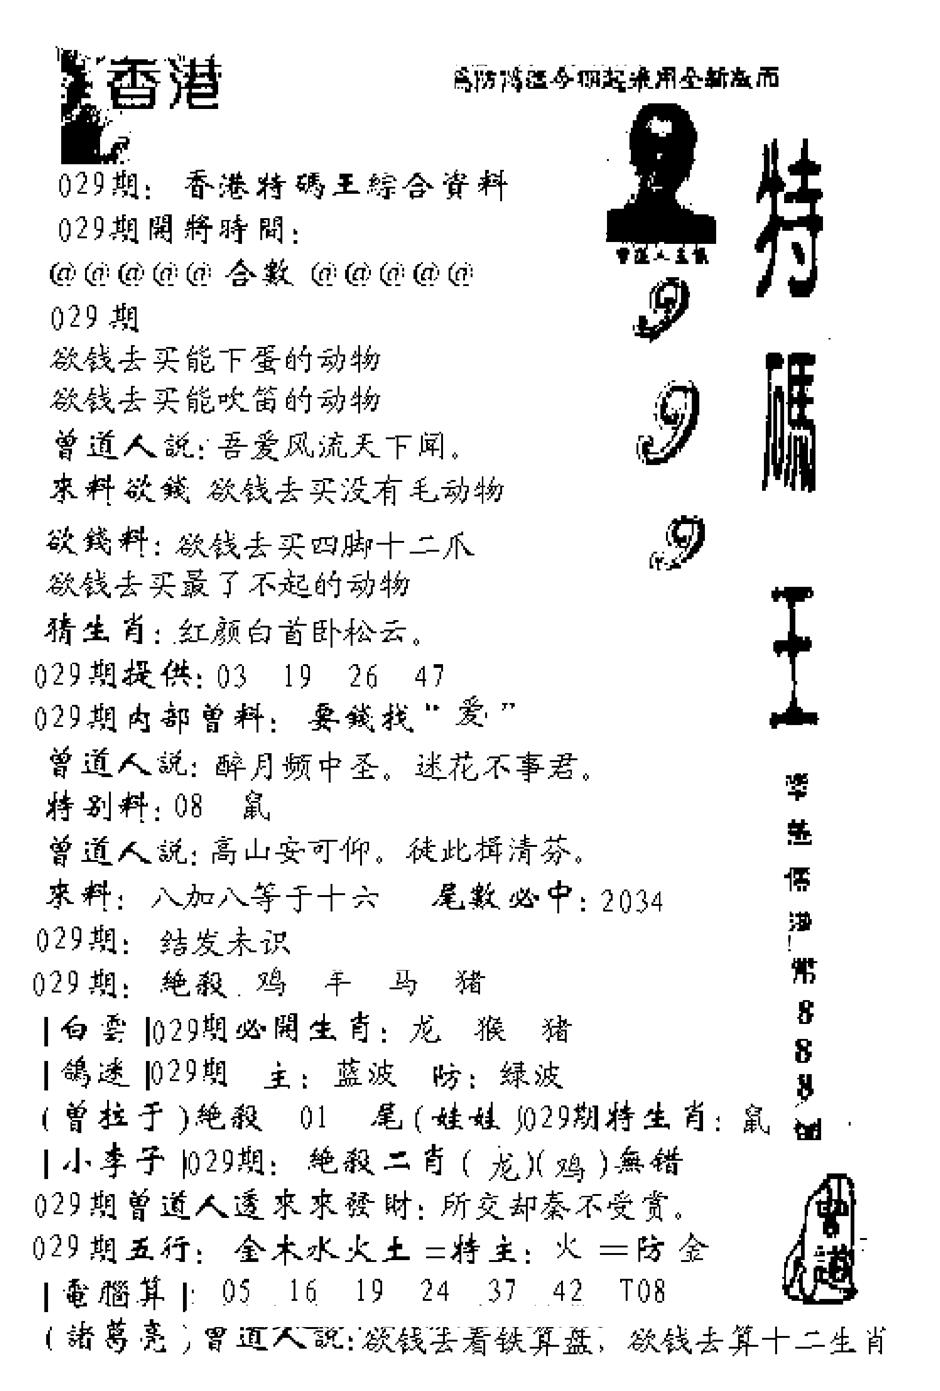 香港
為防濫造今期起采用全新版面
029期： 香港特碼王綜合資料
029期開將時間：
@@@@@合數@@@@@
029期
欲钱去买能下蛋的动物
欲钱去买能吹笛的动物
曾道人説：吾爱风流天下闻。
來料欲錢 欲钱去买没有毛动物
欲錢料：欲钱去买四脚十二爪
欲钱去买最了不起的动物
猜生肖：红颜白首卧松云。
029期提供：03 19 26 47
029期内部曾料： 要錢找“爱”
曾道人説：醉月频中圣。迷花不事君。
特别料：08 鼠
曾道人説：高山安可仰。徒此揖清芬。
來料： 八加八等于十六 尾數必中：2034
029期： 结发未识
029期： 絶殺 鸡 羊 马 猪
|白雲|029期必開生肖：龙 猴 猪
|鴿迷|029期 主：蓝波 防：緑波
(曾拉于)絶殺 01 尾(娃娃)029期特生肖：鼠
|小李子|029期： 絶殺二肖(龙)(鸡)無错
029期曾道人透來來發財：所交却秦不受赏。
029期五行： 金木水火土=特主：火 =防金
|電腦算|：05 16 19 24 37 42 T08
(諸葛亮)曾道人説：欲钱去看铁算盘，欲钱去算十二生肖
曾道人主僕
9
9
9
特
碼
王
港
幣
8
8
8
曾道